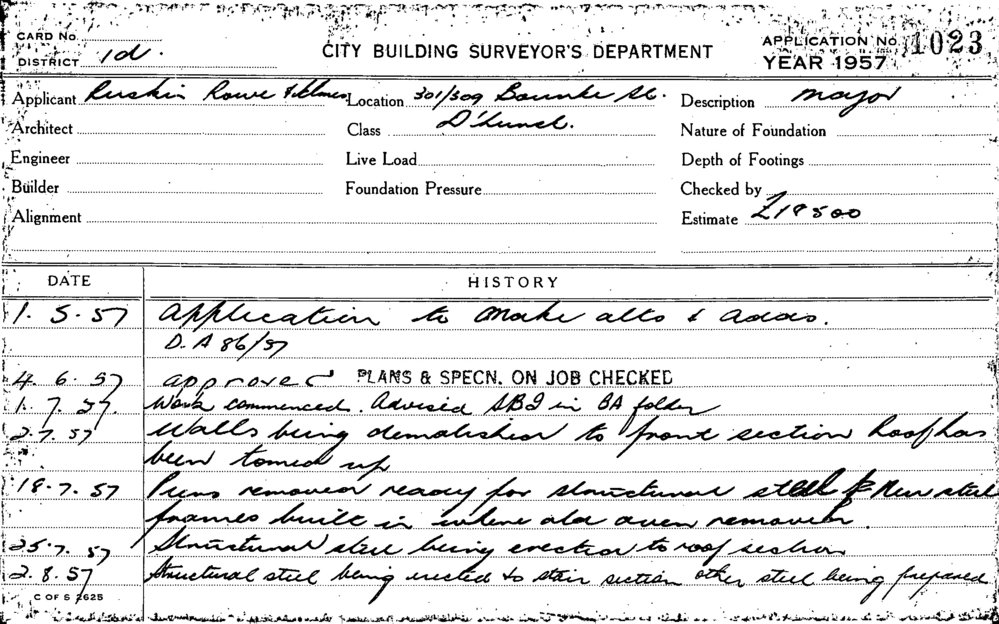 CARD No
DISTRICT 1d.
CITY BUILDING SURVEYOR'S DEPARTMENT
APPLICATION No 1023
YEAR 1957
Applicant Ruskin Rowe & Location 301/309 Bourke St. Description major
Architect Class D'hurst. Nature of Foundation
Engineer Live Load Depth of Footings
Builder Foundation Pressure Checked by
Alignment Estimate £18500
DATE HISTORY
1. 5. 57 Application to make alts & adds.
D. A 86/57
4. 6. 57 approved PLANS & SPECN. ON JOB CHECKED
1. 7. 57. Work commenced. Advised SBI in BA folder
2. 7. 57 Walls being demolished to front section Roof has
been up
18. 7. 57 Piers removed ready for structural steel & New steel
frames built in where old oven removed.
25. 7. 57 Structural steel being erected to roof section
2. 8. 57 Structural steel being erected to stair section other steel being prepared
C OF S 2625